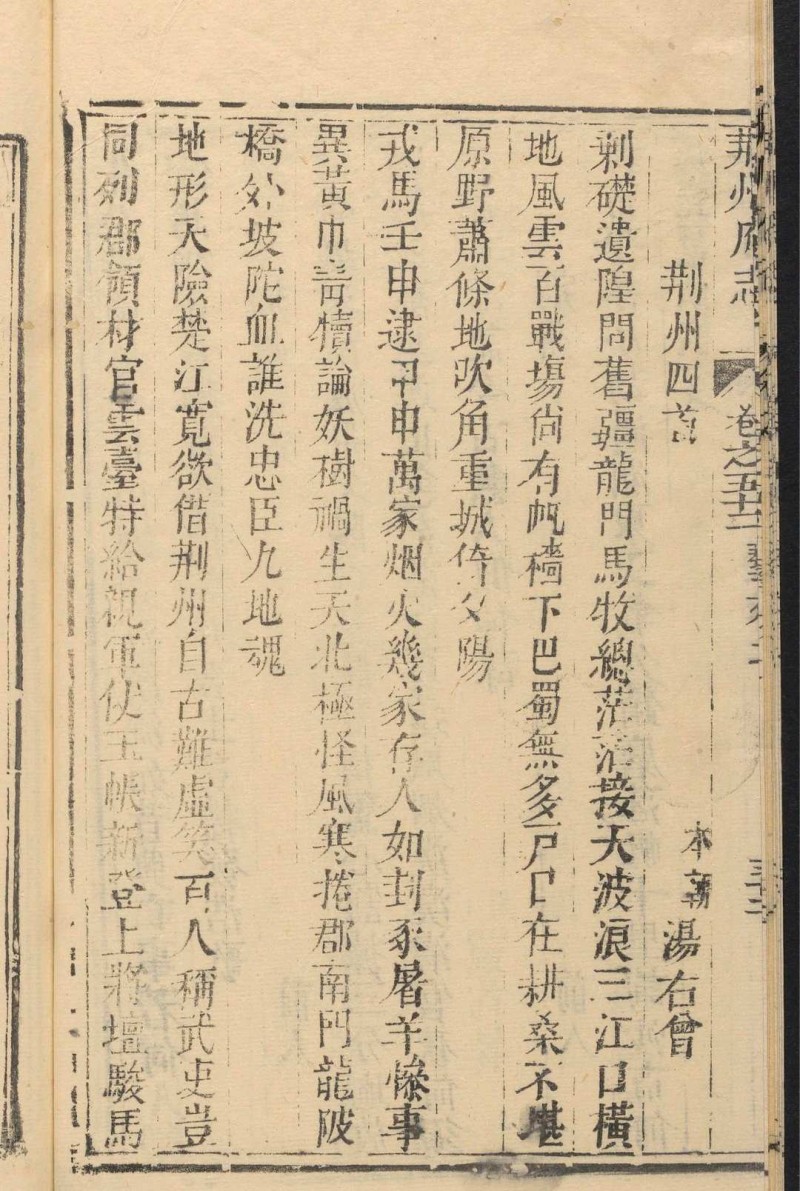 荆州府志 卷之五十二 藝文
荆州四首 本朝 湯右曾
剩礎遺隍問舊疆龍門馬牧總茫茫接天波浪三江口橫
地風雲百戰場尙有帆檣下巴蜀無多戸口在耕桑不堪
原野蕭條地吹角重城倚夕陽
戎馬壬申逮甲申萬家烟火幾家存人如封豕屠羊慘事
異黃巾靑犢論妖樹禍生天北極怪風寒捲郡南門龍陂
橋外坡陀血誰洗忠臣九地魂
地形天險楚江寬欲借荆州自古難虛筭百人稱武吏豈
同列郡領材官雲臺特給視軍仗玉帳新登上將壇駿馬